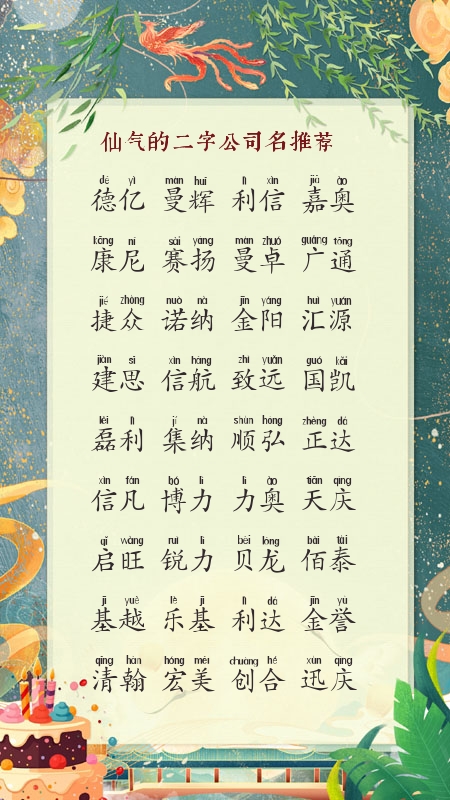 仙气的二字公司名推荐
dé yì màn huī lì xìn jiā ào
德亿 曼辉 利信 嘉奥
kāng ní sài yáng màn zhuó guǎng tōng
康尼 赛扬 曼卓 广通
jié zhòng nuò nà jīn yáng huì yuán
捷众 诺纳 金阳 汇源
jiàn sī xìn háng zhì yuǎn guó kǎi
建思 信航 致远 国凯
lěi lì jí nà shùn hóng zhèng dá
磊利 集纳 顺弘 正达
xìn fán bó lì lì ào tiān qìng
信凡 博力 力奥 天庆
qǐ wàng ruì lì bèi lóng bǎi tài
启旺 锐力 贝龙 佰泰
jī yuè lè jī lì dá jīn yù
基越 乐基 利达 金誉
qīng hàn hóng měi chuàng hé xùn qìng
清翰 宏美 创合 迅庆